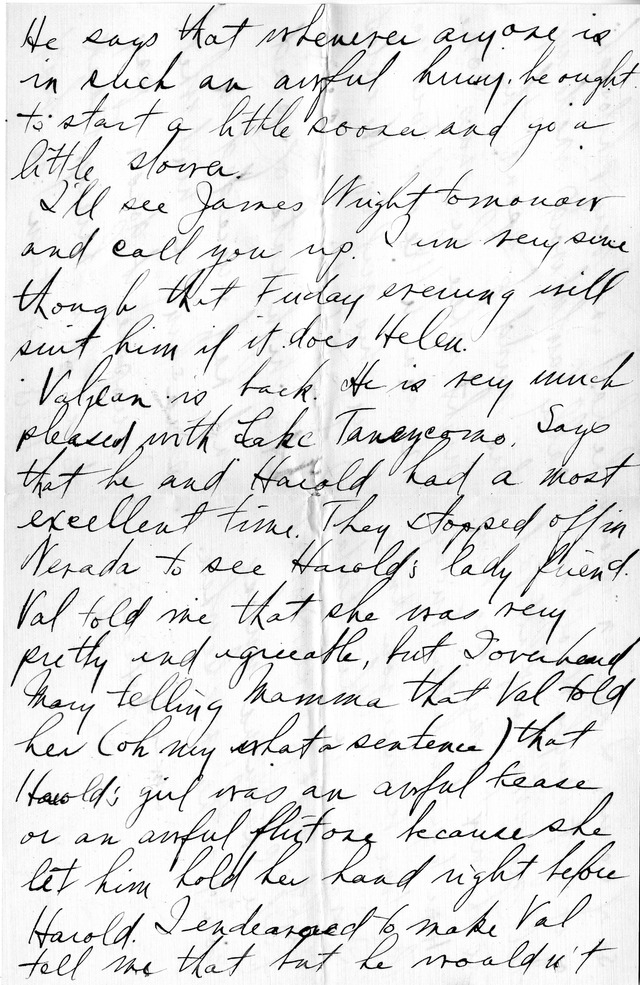 He says that whenever anyone is
in such an awful hurry he ought
to start a little sooner and go a
little slower.
I'll see James Wright tomorrow
and call you up. I am very sure
though that Friday evening will
suit him if it does Helen.
Valjean is back. He is very much
pleased with Lake Taneycomo. Says
that he and Harold had a most
excellent time. They stopped off in
Nevada to see Harold's lady friend.
Val told me that she was very
pretty and agreeable, but I overheard
Mary telling Mamma that Val told
her (oh my what a sentence) that
Harold's girl was an awful tease
or an awful flirt one because she
let him hold her hand right before
Harold. I endeavored to make Val
tell me that but he wouldn't